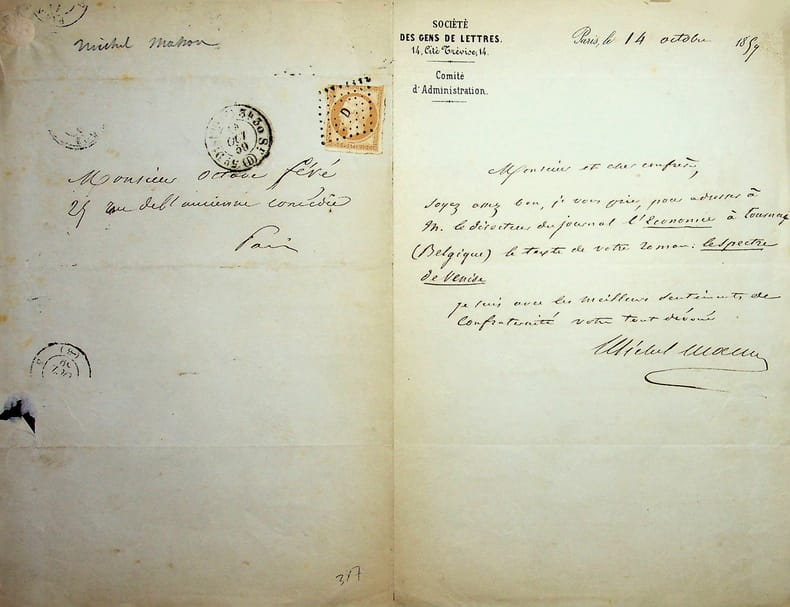 Michel Masson
D
3e 30 S
OCT
59
Monsieur octave féré
25 rue de l'ancienne comédie
Paris
317
SOCIÉTÉ
DES GENS DE LETTRES.
14, Cité Trévise, 14.
Comité
d'Administration.
Paris, le 14 octobre 1859
Monsieur et cher confrère,
Soyez assez bon, je vous prie, pour adresser à
M. le directeur du journal l'Economie à Tournay
(Belgique) le texte de votre roman: le spectre
de Venise
je suis avec les meilleurs sentiments de
confraternité votre tout dévoué
Michel Masson